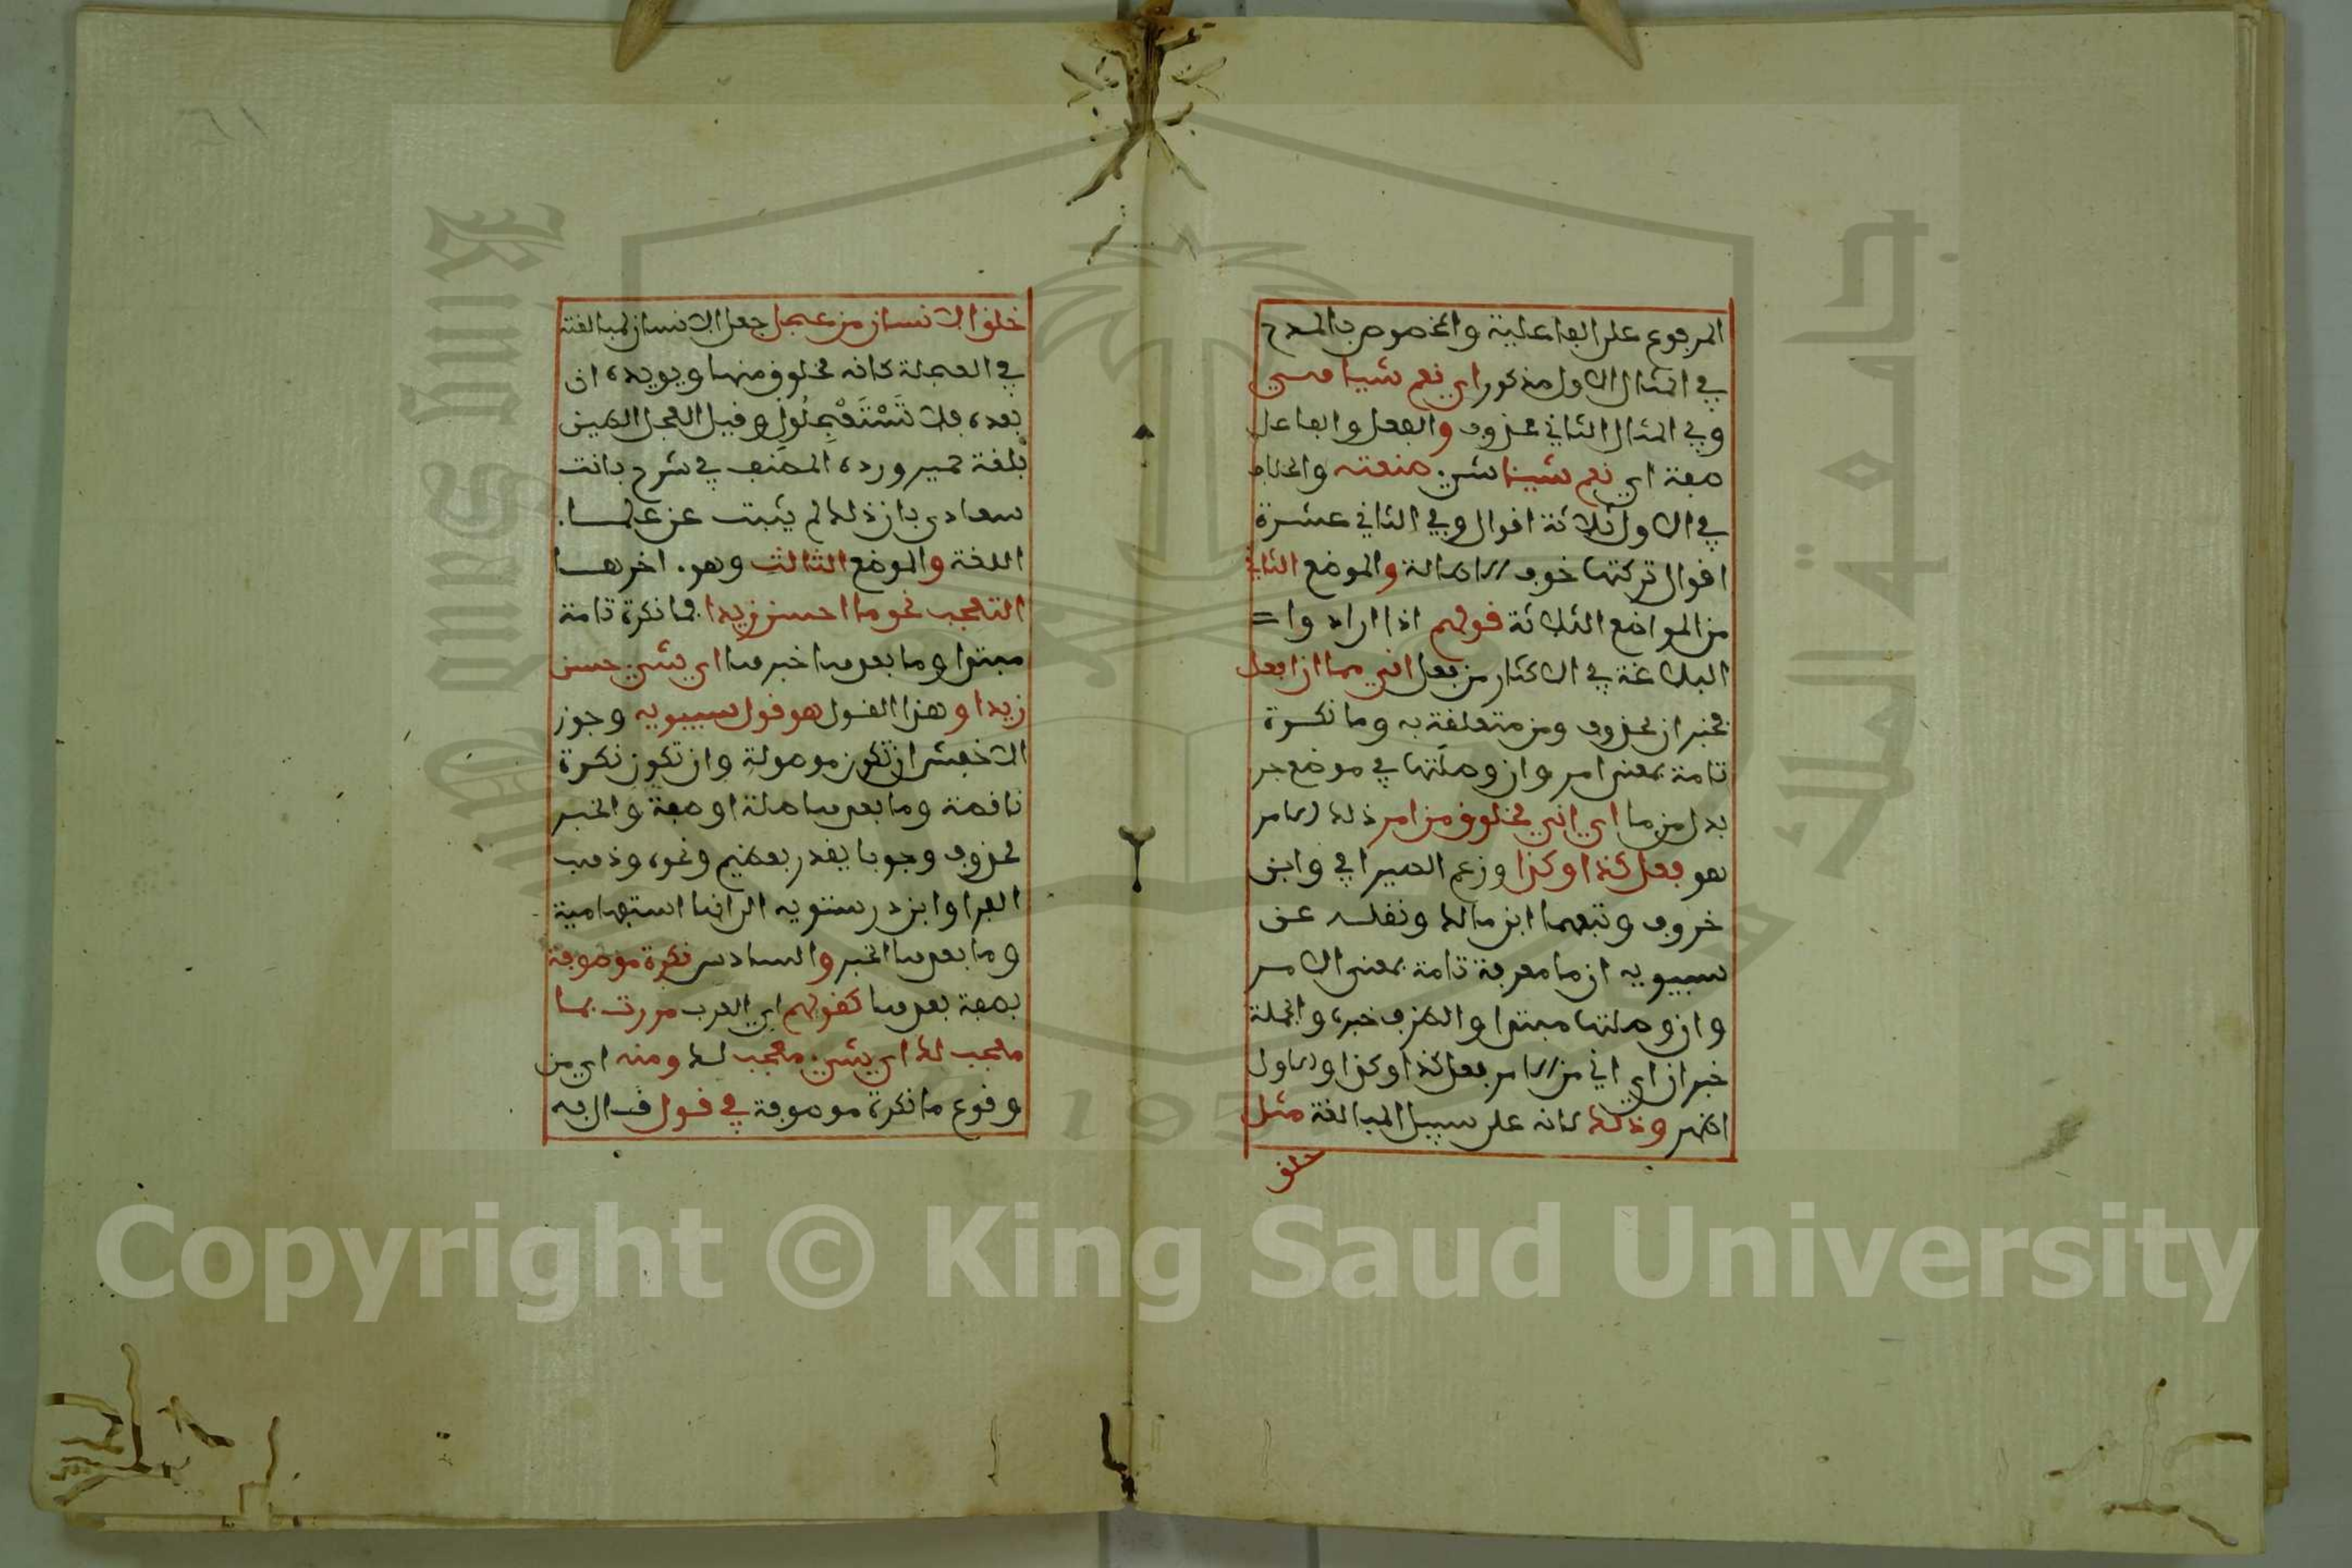 المرفوع على الفاعلية والمخصوص بالمدح
في المثال الاول مذكور اي نعم شيا هي
وفي المثال الثاني محذوف والفعل والفاعل
صفة اي نعم شيئا شيء صنعته والخلاف
في الاول ثلاثة اقوال وفي الثاني عشرة
اقوال تركتها خوف الاطالة والموضع الثاني
من المواضع الثلاثة قولهم اذا ارادوا
البلاغة في الاكثار من فعل اني مما ان افعل
فخبر ان محذوف ومن متعلقة به وما نكرة
تامة بمعنى امر وان وصلتها في موضع جر
بدل من ما اي اني مخلوق من امر ذلك الامر
هو فعل كذا وكذا وزعم السيرافي وابن
خروف وتبعهما ابن مالك ونقله عن
سيبويه ان ما معرفة تامة بمعنى الامر
وان وصلتها مبتدا والظرف خبره والجملة
خبر ان اي اني من الامر فعل كذا وكذا والاول
اظهر وذلك لانه على سبيل المبالغة مثل
خلق
خلق الانسان من عجل جعل الانسان لمبالغته
في العجلة كانه مخلوق منها ويويده ان
بعده فلا تَسْتَعْجِلُونِ وقيل العجل الطين
بلغة حمير ورده المصنف في شرح بانت
سعاد بان ذلك لم يثبت عن علما
اللغة والموضع الثالث وهو اخرها
التعجب نحو ما احسن زيدا فما نكرة تامة
مبتدا وما بعدها خبرها اي شيء حسن
زيدا وهذا القول هو قول سيبويه وجوز
الاخفش ان تكون موصولة وان تكون نكرة
ناقصة وما بعدها صلة او صفة والخبر
محذوف وجوبا يقدر بعظيم ونحوه وذهب
الفرا وابن درستويه الى انها استفهامية
وما بعدها الخبر والسادس نكرة موصوفة
بصفة بعدها كقولهم اي العرب مررت بما
معجب لك اي شيء معجب لك ومنه اي من
وقوع ما نكرة موصوفة في قول قال فيه